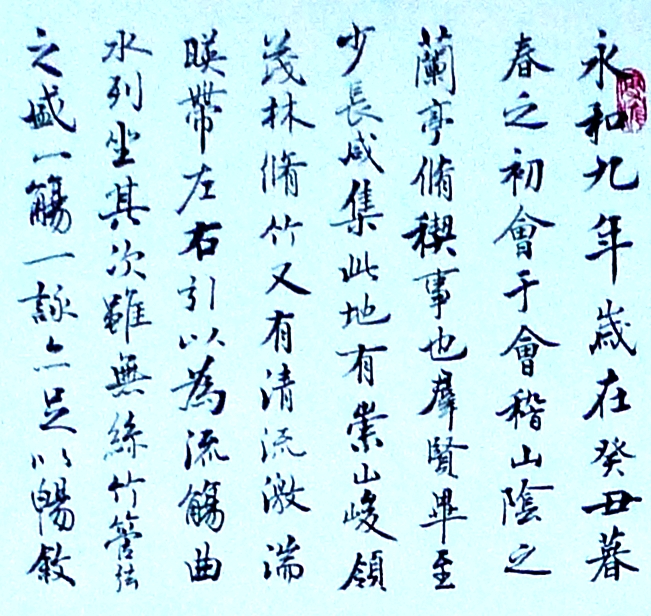 永和九年歲在癸丑暮
春之初會于會稽山陰之
蘭亭脩稧事也羣賢畢至
少長咸集此地有崇山峻領
茂林脩竹又有清流激湍
暎帶左右引以為流觴曲
水列坐其次雖無絲竹管弦
之盛一觴一詠亦足以暢敘